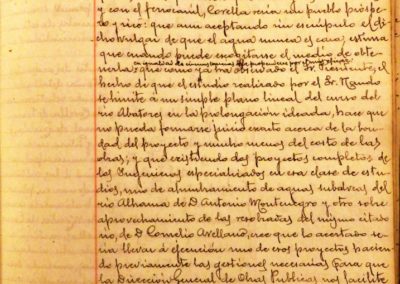 y con el ferrocarril, Corella sería un pueblo próspe-
ro y rico: que aun aceptando sin escrúpulo el di-
cho vulgar de que el agua nunca es cara, estima
que cuando puede evitarse el medio de obte-
nerla; que como ya ha observado el Sr. Presidente, el
hecho de que el estudio realizado por el Sr.
se limite á un simple plano lineal del curso del
río Abatores en la prolongación ideada, hace que
no pueda formarse juicio exacto acerca de la bon-
dad del proyecto y mucho menos del costo de las
obras; y que existiendo dos proyectos completos de
los Ingenieros especializados en esa clase de estu-
dios, uno de alumbramiento de aguas subálveas del
río Alhama de D. Antonio Montenegro y otro sobre
aprovechamiento de las resobradas del mismo citado
río, de D. Cornelio Arellano, cree que lo acertado se-
ría llevar á ejecución uno de esos proyectos hacien-
do previamente las gestiones necesarias para que
la Dirección General de Obras Públicas nos facilite